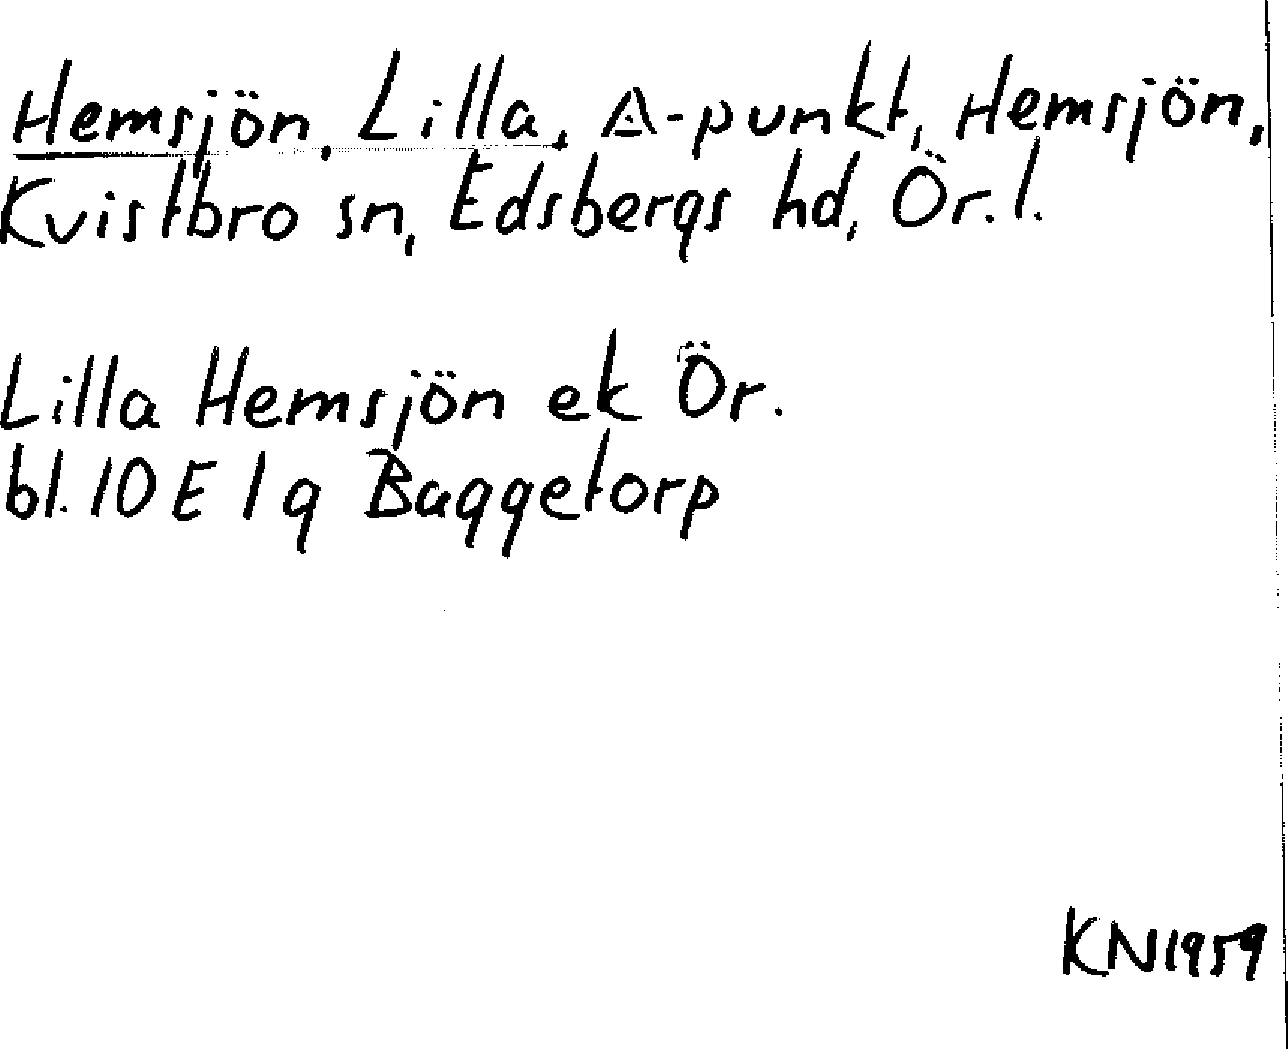 Hemsjön, Lilla, △-punkt, Hemsjön,
Kvistbro sn, Edsbergs hd, Ör.l.
Lilla Hemsjön ek Ör.
bl. 10 E 1 g Baggetorp
KN1959